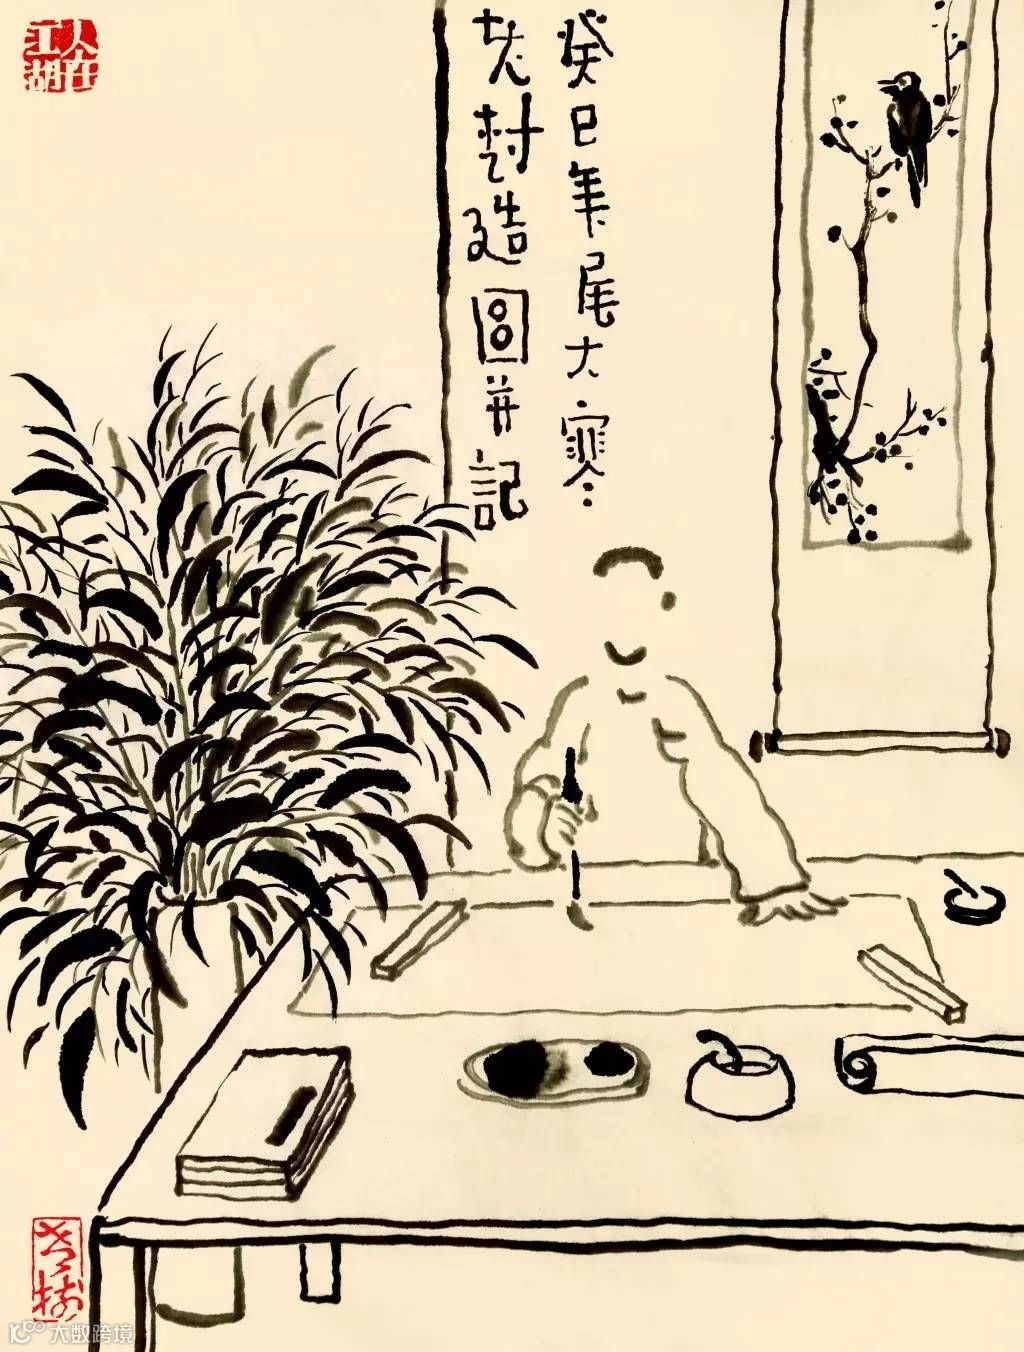 癸巳年尾大寒
老树造圖并記
人在
江湖
老树
大数跨境